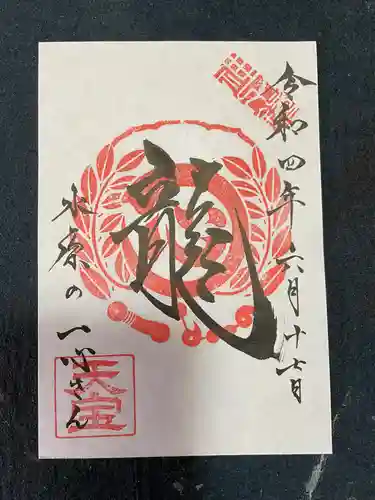 令和四年六月十七日
龍
水原の一心さん
天宝